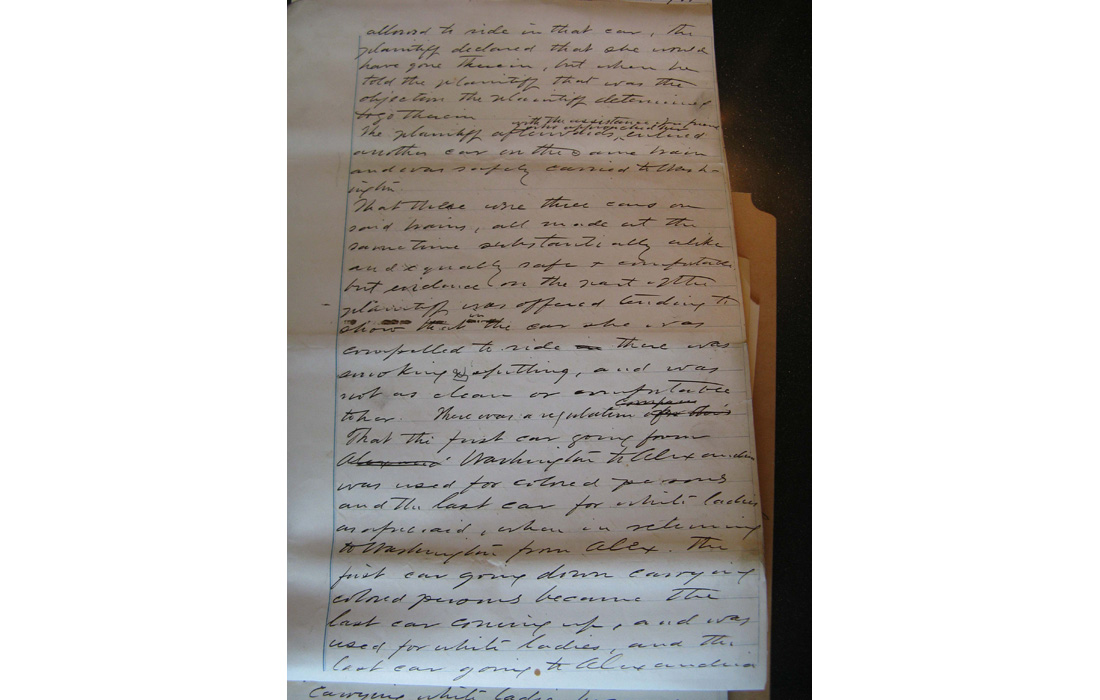 allowed to ride in that car, the
plaintiff declared that she would
have gone therein, but when he
told the plaintiff that was the
objection the plaintiff determined
to go therein
with the assistance
The plaintiff afterwards, entered
another car on the same train
and was safely carried to Wash-
ington.
That there were three cars on
said trains, all made at the
same time substantially alike
and equally safe + comfortable
but evidence on the part of the
plaintiff was offered tending to
show that in the car she was
compelled to ride there was
smoking & spitting, and was
not as clean or comfortable
to her. There was a regulation
company
That the first car going from
Washington to Alexandria
was used for colored persons
and the last car for white ladies
as aforesaid, when in returning
to Washington from Alex. The
first car going down carrying
colored persons became the
last car coming up, and was
used for white ladies, and the
last car going to Alexandria
carrying white ladies